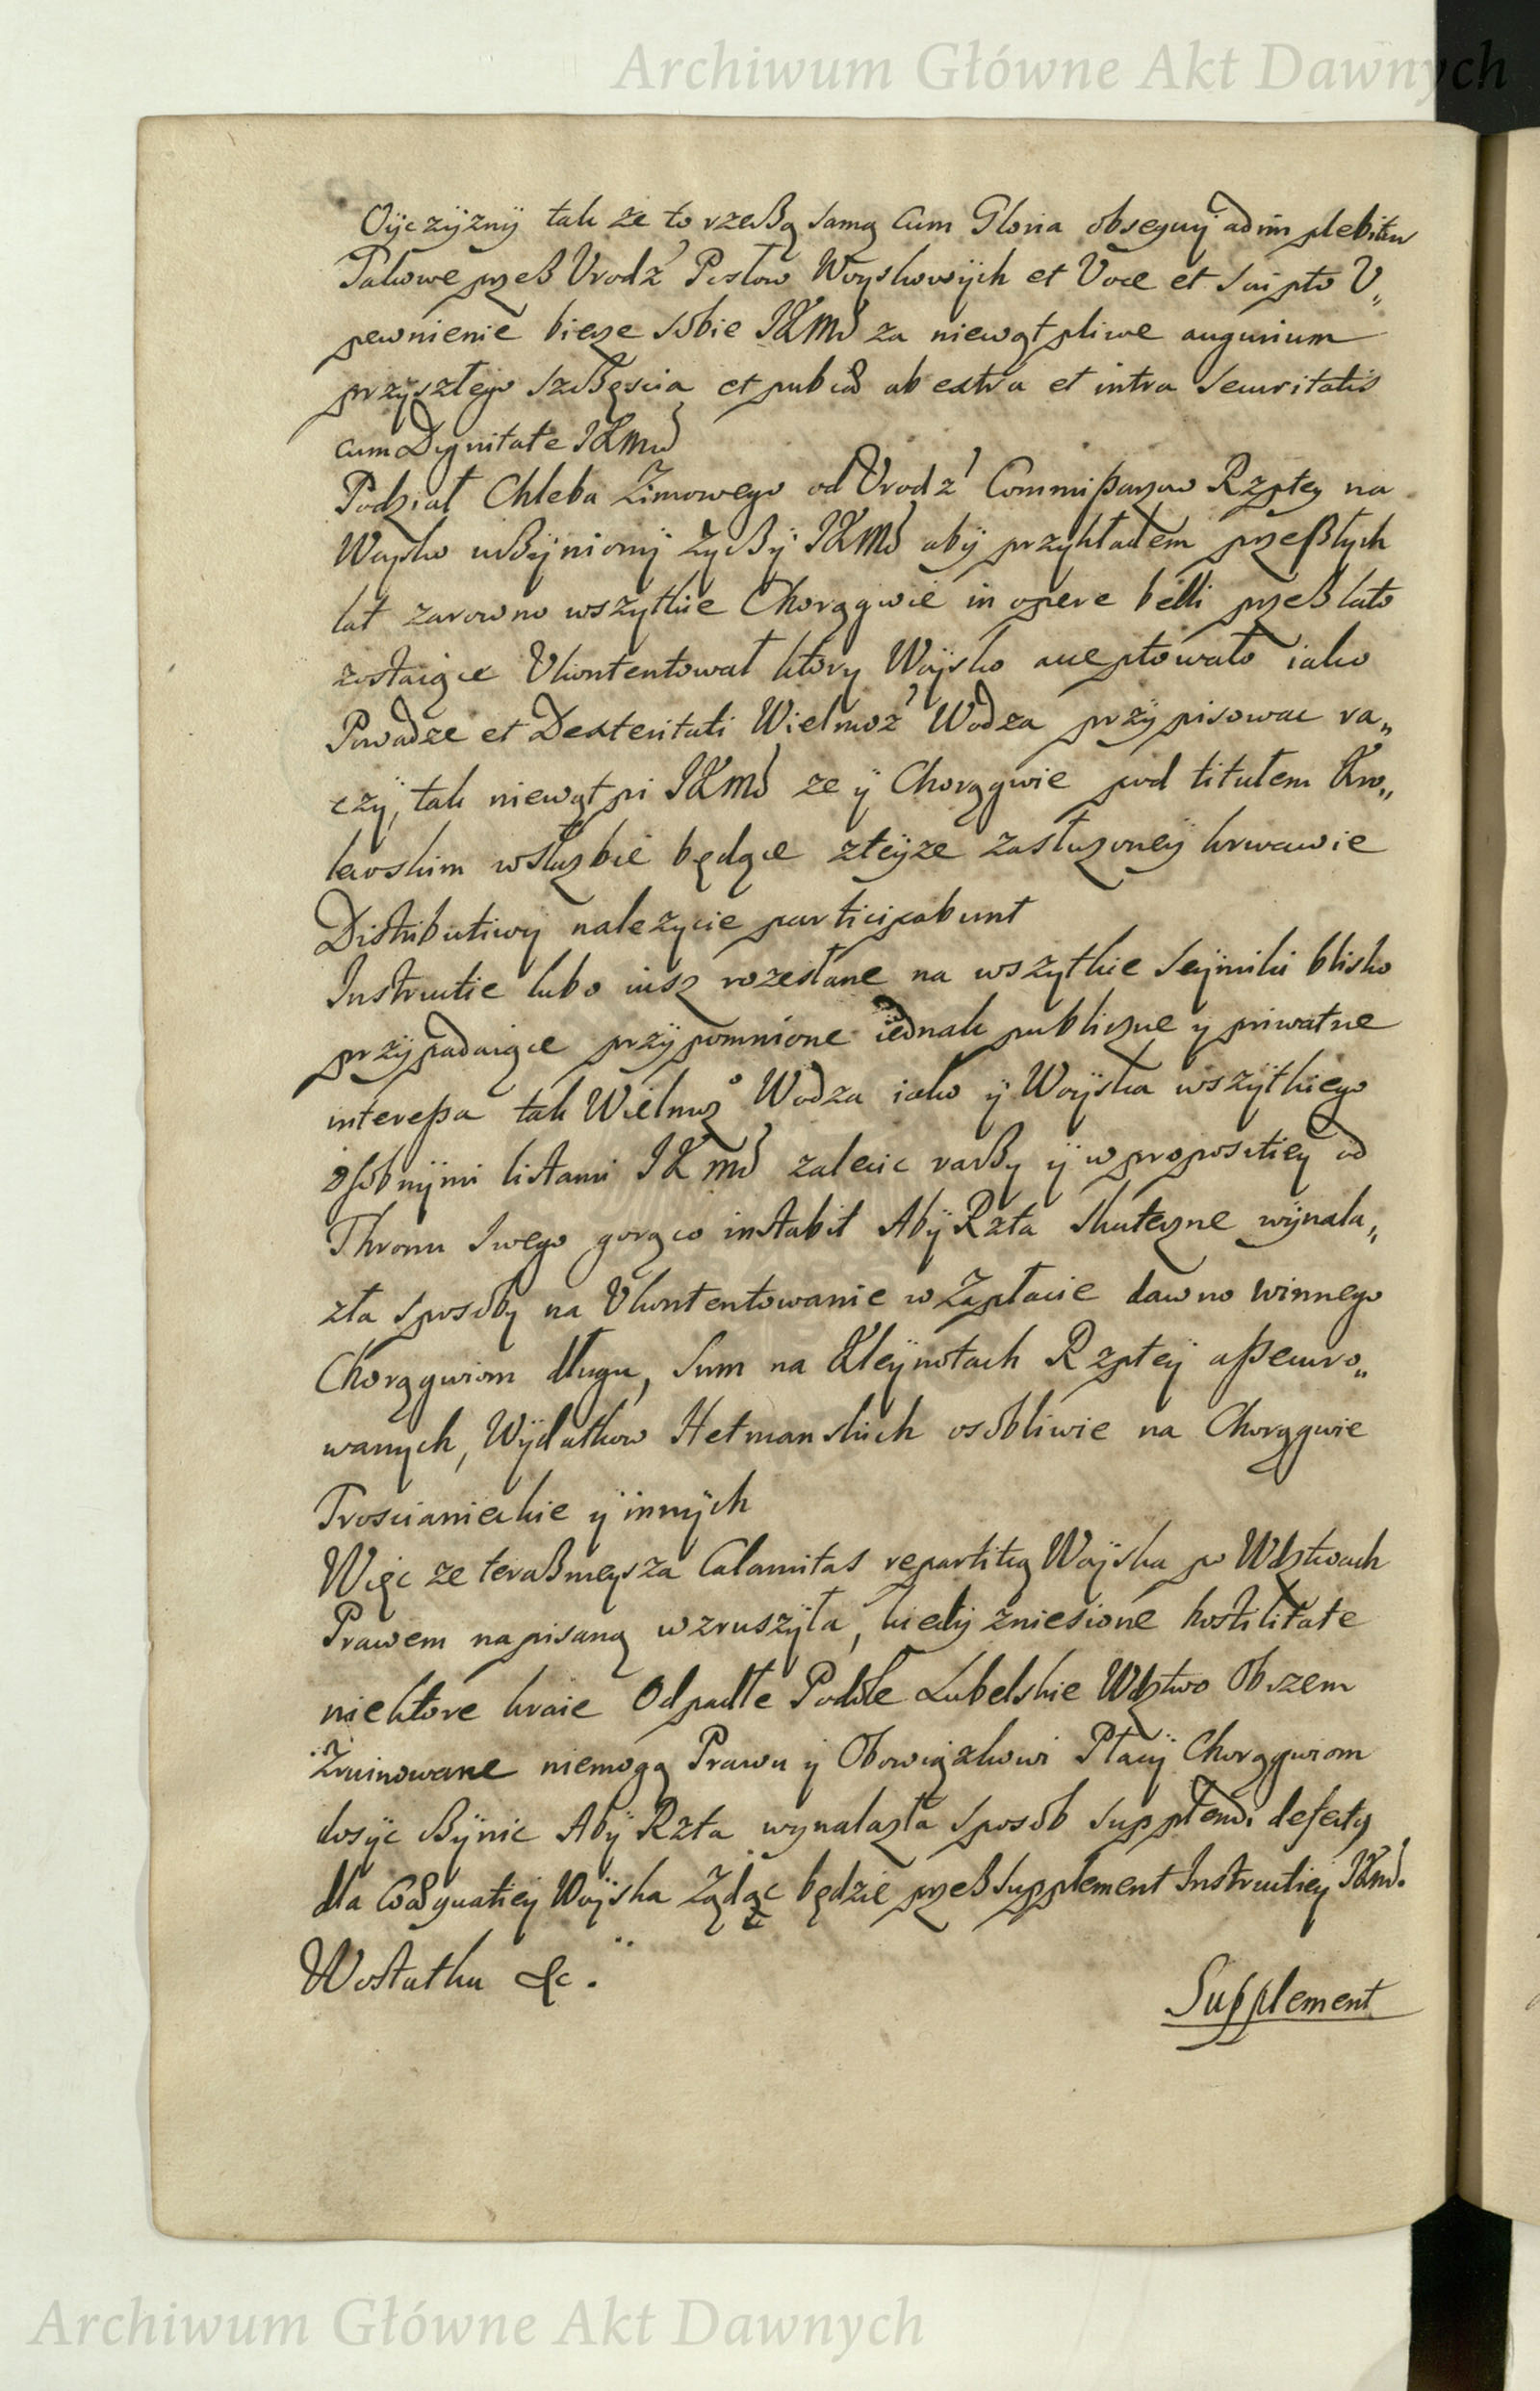 Archiwum Główne Akt Dawnych
Oÿczÿznÿ tak ze to rzeßą samą Cum Gloria obsequÿ adimplebitur
Takowe przeß Urodz Posłow Woyskowÿch et Voce et scripto U„
pewnienie bierze sobie JKMć za niewątpliwe augurium
przyszłego szczęscia et ab extra et intra securitatis
cum Dignitate JKMci
Podział Chleba Zimowego od Urodz Commissarzow Rzptey na
Woysko uczÿnionÿ zyczÿ JKMć abÿ przykładem przeszłych
lat zarowno wszytkie Chorągwie in opere belli przeß lato
zostaiące Ukontentował ktory Woÿsko acceptowało iako
Powadze et Dexteritati Wielmoz Wodza przÿpisowac ra„
czÿ, tak niewątpi JKMć ze ÿ Chorągwie pod titułem Kro„
lewskim wsłuzbie będące zteÿze zasłuzoneÿ krwawie
Distributiwy nalezycie participabunt
Instructie lubo iusz rozesłane na wszytkie Seÿmiki blisko
przÿpadaiące przÿpomnione iednak publiczne y priwatne
interessa tak Wielmoz Wodza iako ÿ Woÿska wszÿtkiego
osobnÿmi listami JKMć zalecic raczy ÿ w propositieÿ od
Thronu Swego gorąco instabit Abÿ Rzta skuteczne wÿnala„
zła sposoby na Ukontentowanie w Zapłacie dawno winnego
Chorągwiom długu, Sum na Kleÿnotach Rzpteÿ assecuro„
wanych, Wÿdatkow Hetmanskich osobliwie na Chorągwie
Troscianieckie ÿ innÿch
Więc ze teraßnieysza Calamitas repartitią Woÿska po Wdztwach
Prawem napisaną wzruszÿła, kiedÿ zniesione hostilitate
niektore kraie Odpadłe Podole Lubelskie Wdztwo Obozem
Zruinowane niemogą Prawu ÿ Obowiązkowi Płacÿ Chorągwiom
dosÿc czÿnic Abÿ Rzta wynalazła sposob supplendi defecty
dla Coaequatieÿ Woÿska Ządac będzie przeß Supplement Instructieÿ JKMć.
Wostatku &c.
Supplement
Archiwum Główne Akt Dawnych